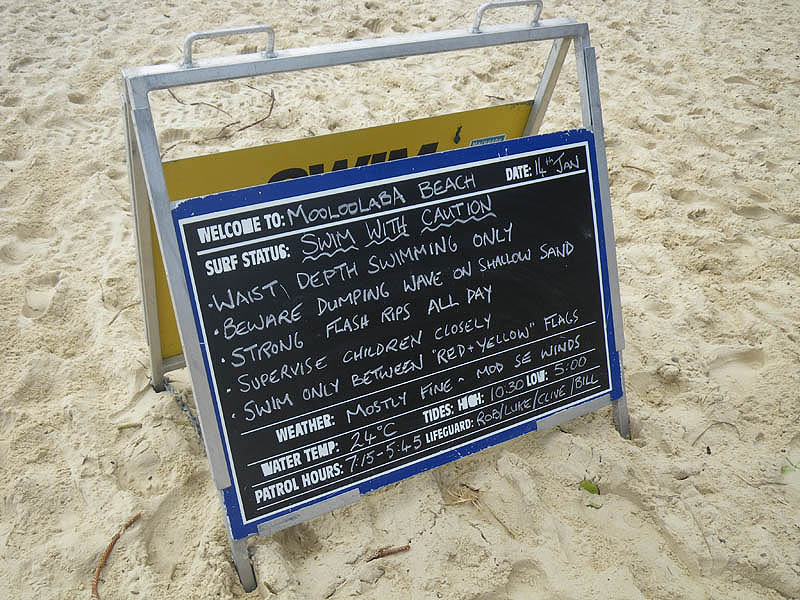 SWIM
WELCOME TO: MOOLOOLABA BEACH DATE: 14th JAN
SURF STATUS: SWIM WITH CAUTION
• WAIST DEPTH SWIMMING ONLY
• BEWARE DUMPING WAVE ON SHALLOW SAND
• STRONG FLASH RIPS ALL DAY
• SUPERVISE CHILDREN CLOSELY
• SWIM ONLY BETWEEN "RED + YELLOW" FLAGS
WEATHER: MOSTLY FINE - MOD SE WINDS
WATER TEMP: 24°C TIDES: HIGH: 10:30 LOW: 5:00
PATROL HOURS: 7:15-5:45 LIFEGUARD: ROB/LUKE/CLIVE/BILL